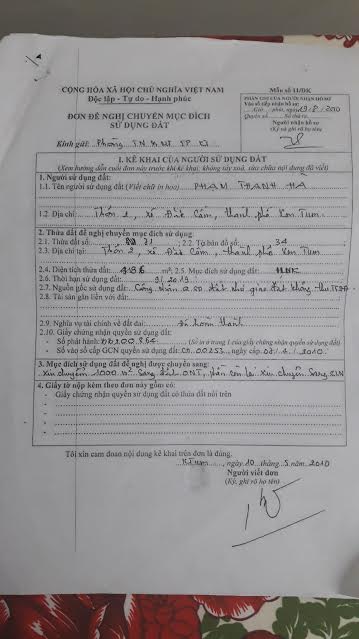 CỘNG HÒA XÃ HỘI CHỦ NGHĨA VIỆT NAM
Độc lập - Tự do - Hạnh phúc
Mẫu số 11/ĐK
PHẦN GHI CỦA NGƯỜI NHẬN HỒ SƠ
Vào sổ tiếp nhận hồ sơ
Giờ phút, ngày
Quyển số Số thứ tự
Người nhận hồ sơ
(Ký và ghi rõ họ tên)
ĐƠN ĐỀ NGHỊ CHUYỂN MỤC ĐÍCH
SỬ DỤNG ĐẤT
Kính gửi: Phòng TN & MT TP
I. KÊ KHAI CỦA NGƯỜI SỬ DỤNG ĐẤT
(Xem hướng dẫn cuối đơn này trước khi kê khai; không tẩy xoá, sửa chữa nội dung đã viết)
1. Người sử dụng đất:
1.1. Tên người sử dụng đất (Viết chữ in hoa) PHẠM THANH HÀ
1.2. Địa chỉ: Thôn 2, xã Đăk Cấm, thành phố Kon Tum
2. Thửa đất đề nghị chuyển mục đích sử dụng:
2.1. Thửa đất số: 21; 2.2. Tờ bản đồ số: 34
2.3. Địa chỉ tại: Thôn 2, xã Đăk Cấm, thành phố Kon Tum
2.4. Diện tích thửa đất: m²; 2.5. Mục đích sử dụng đất: HNK
2.6. Thời hạn sử dụng đất:
2.7. Nguồn gốc sử dụng đất: Công nhận QSD đất như giao đất không thu
2.8. Tài sản gắn liền với đất:
2.9. Nghĩa vụ tài chính về đất đai: Đã hoàn thành
2.10. Giấy chứng nhận quyền sử dụng đất:
- Số phát hành: (Số in ở trang 1 của giấy chứng nhận quyền sử dụng đất)
- Số vào sổ cấp GCN quyền sử dụng đất: 00253, ngày cấp 2010
3. Mục đích sử dụng đất đề nghị được chuyển sang:
Xin chuyển 1000 m² sang đất ONT, phần còn lại xin chuyển sang CLN
4. Giấy tờ nộp kèm theo đơn này gồm có:
- Giấy chứng nhận quyền sử dụng đất có thửa đất nói trên
Tôi xin cam đoan nội dung kê khai trên đơn là đúng.
ngày 10 tháng 5 năm 2010
Người viết đơn
(Ký, ghi rõ họ tên)